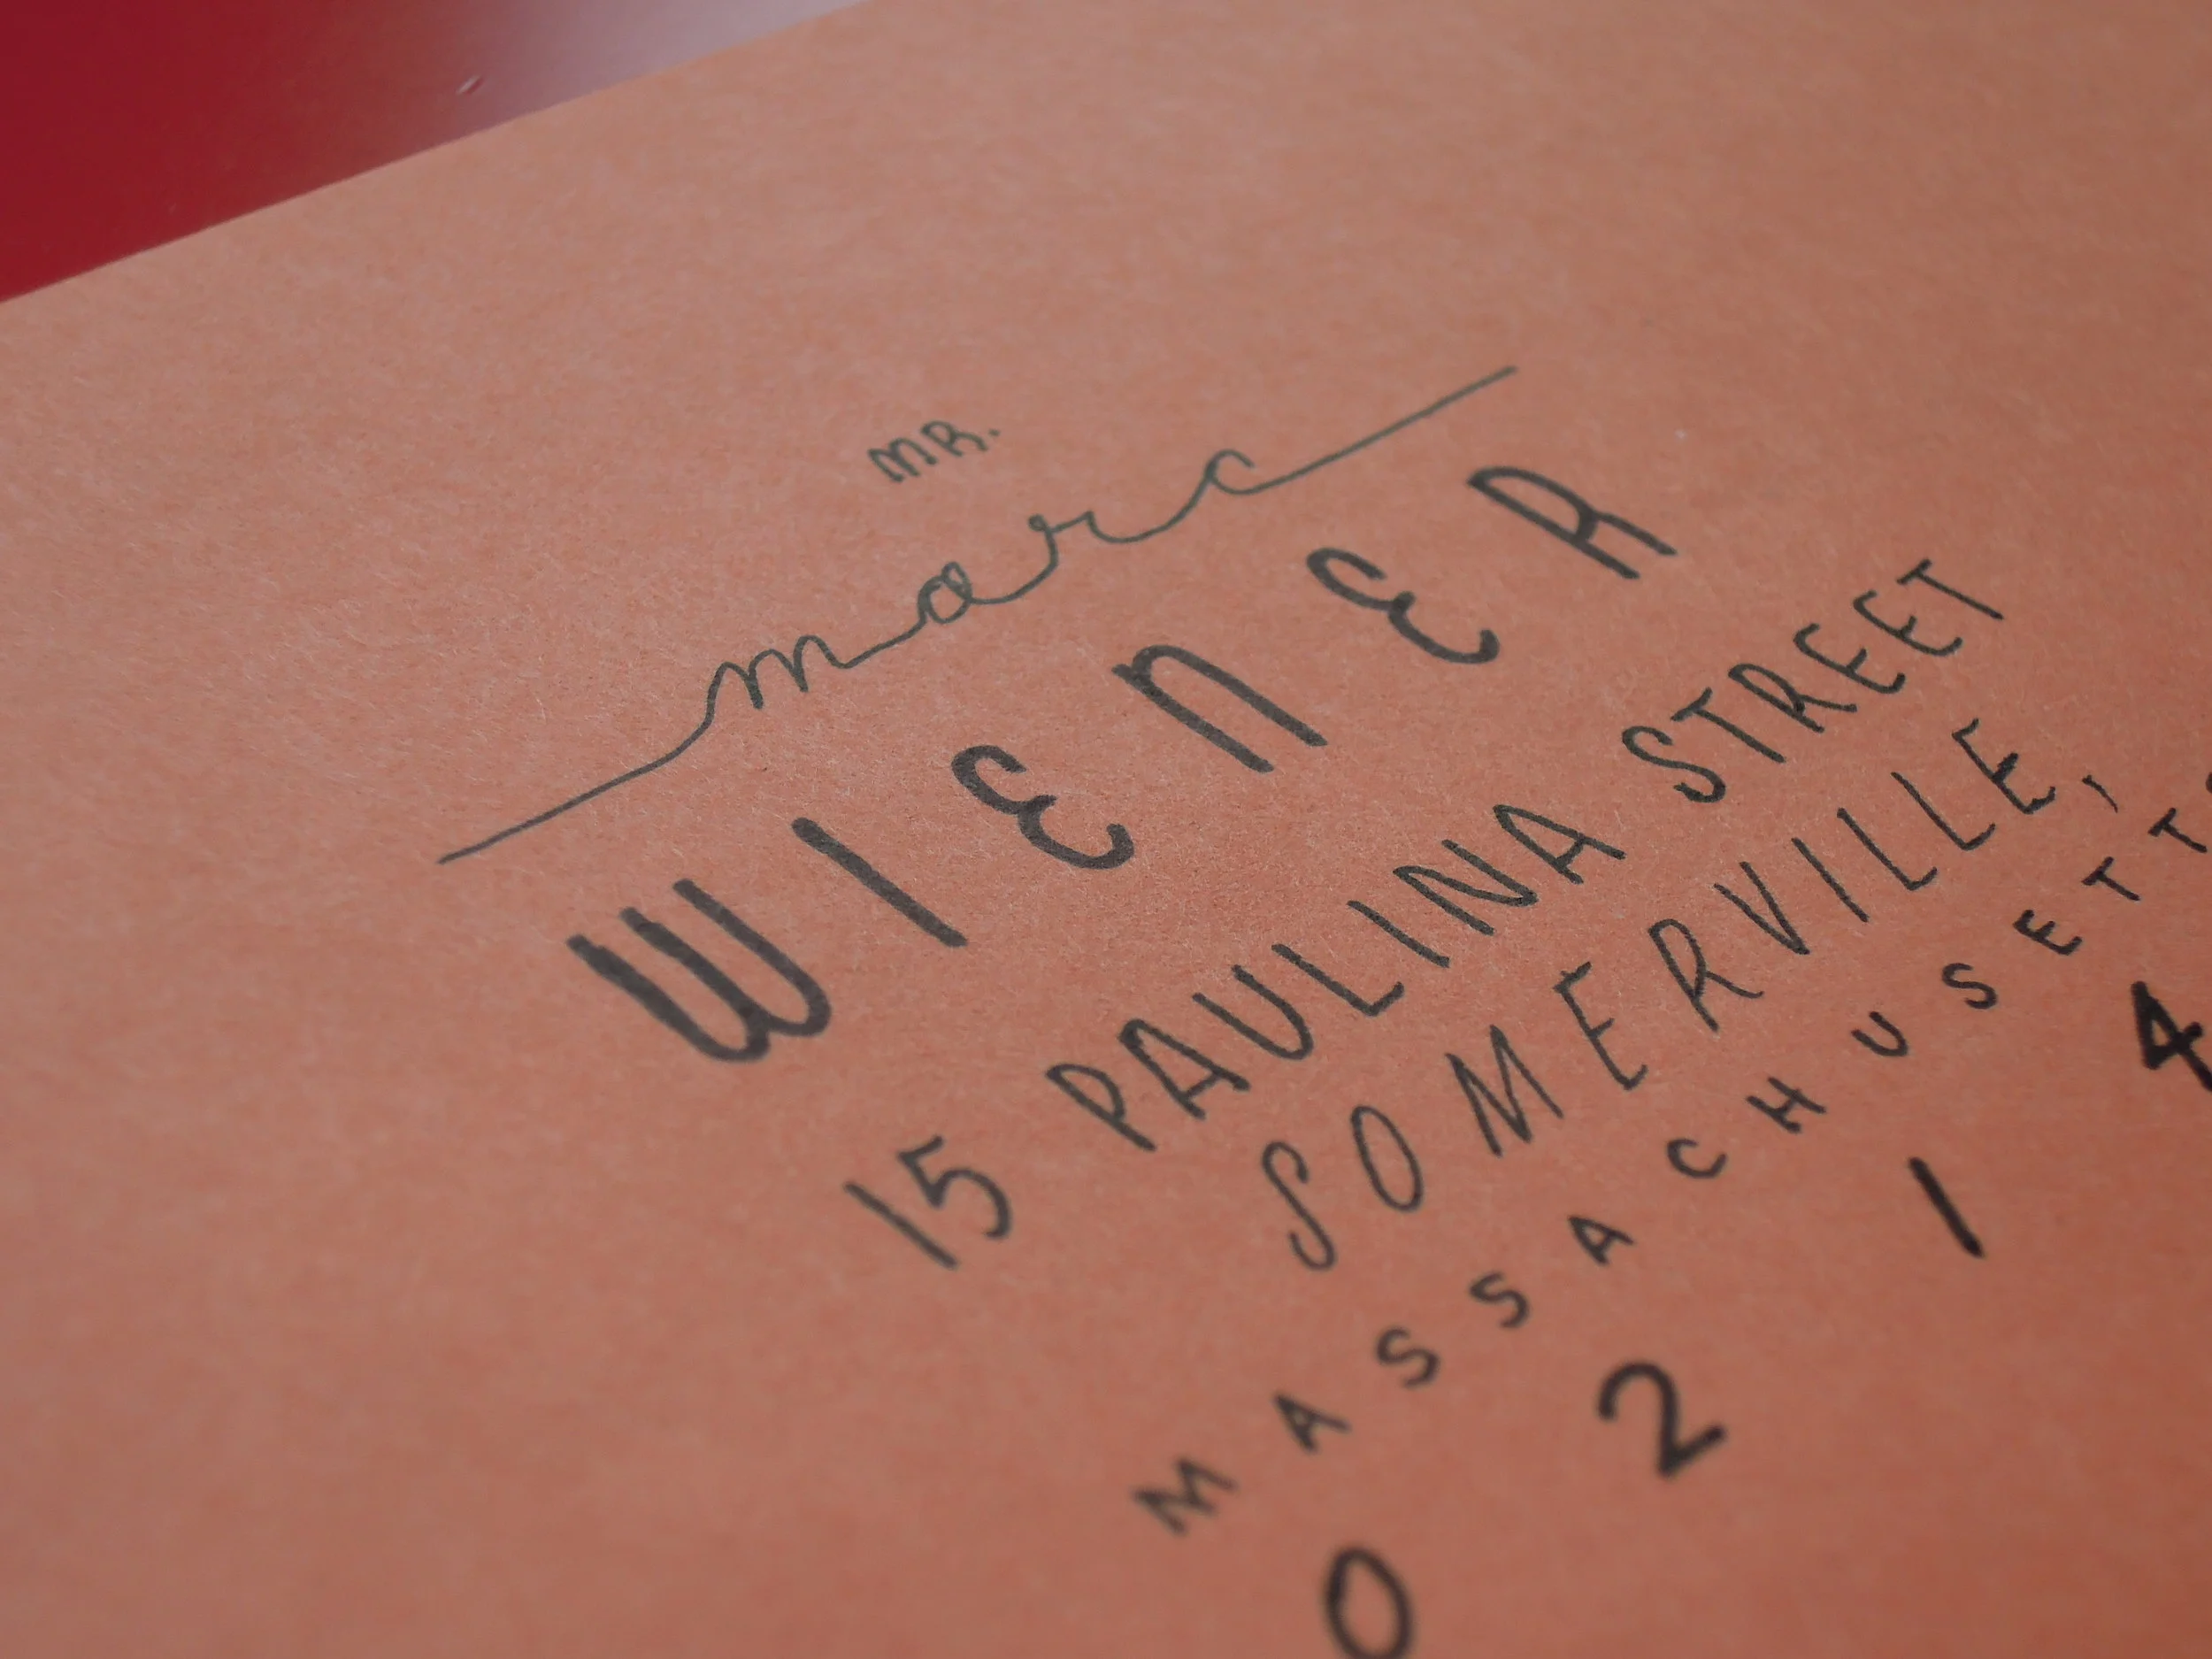 MR.
marc
WIENER
15 PAULINA STREET
SOMERVILLE,
MASSACHUSETTS
0214